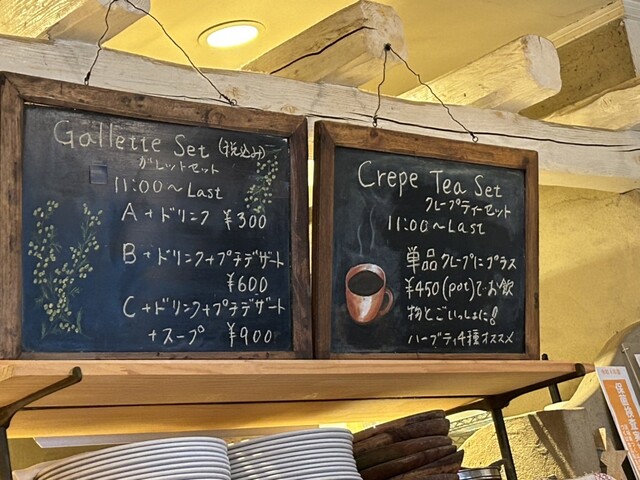 Gallette Set (税込み)
ガレットセット
11:00～Last
A+ドリンク ¥300
B+ドリンク+プチデザート
¥600
C+ドリンク+プチデザート
+スープ ¥900
Crepe Tea Set
クレープティーセット
11:00～Last
単品クレープにプラス
¥450(pot)でお飲
物とごいっしょに!
ハーブティ4種オススメ